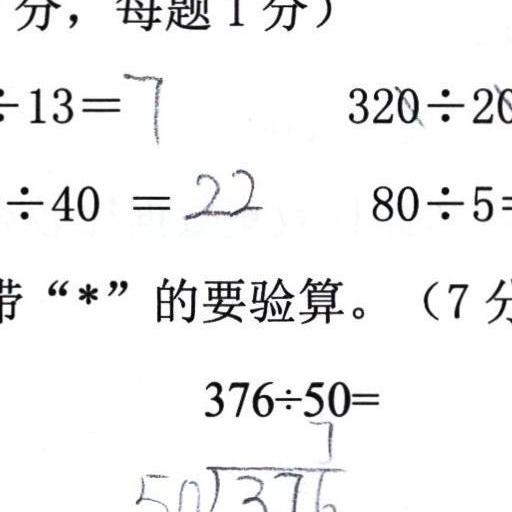 分，每题1分）
÷13=7 320÷20
÷40 =22 80÷5=
带“*”的要验算。（7分
376÷50=
7
50)376